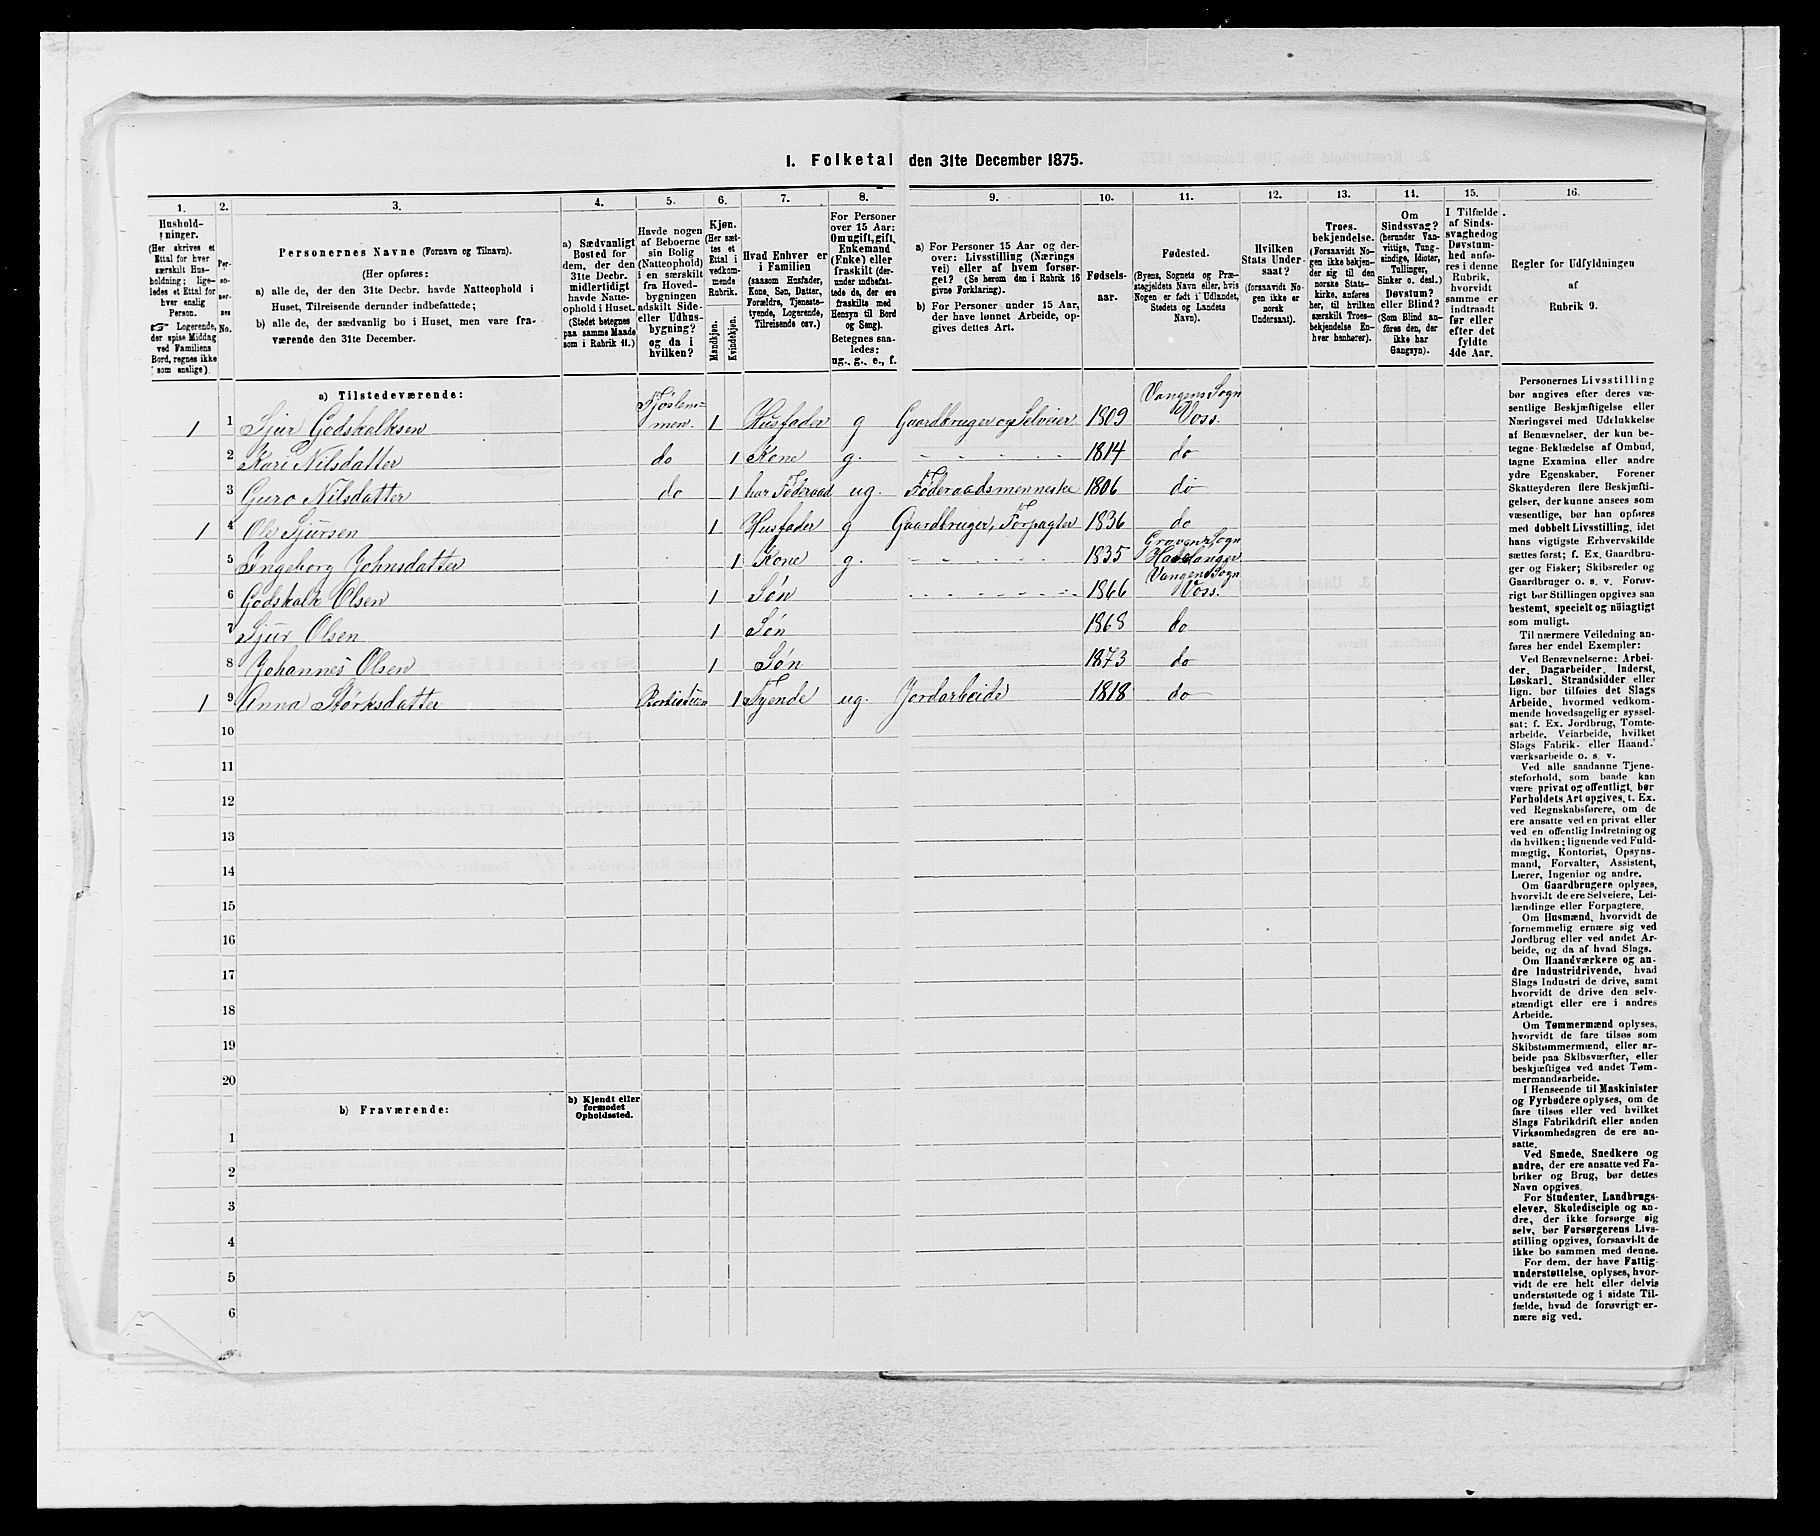 1. Folketal den 31te December 1875.
1. 2. 3. 4. 5. 6. 7. 8. 9. 10. 11. 12. 13. 14. 15. 16.
Hushold-
ninger.
(Her skrives et
Ettal for hver
særskilt Hus-
holdning; lige-
ledes et Ettal for
hver enslig
Person.
☞ Logerende,
der spise Middag
ved Familiens
Bord, regnes ikke
som enslige).
Per-
so-
ner-
nes
No.
Personernes Navne (Fornavn og Tilnavn).
(Her opføres:
a) alle de, der den 31te Decbr. havde Natteophold i
Huset, Tilreisende derunder indbefattede;
b) alle de, der sædvanlig bo i Huset, men vare fra-
værende den 31te December.
a) Sædvanligt
Bosted for
dem, der den
31te Decbr.
midlertidigt
havde Natte-
ophold i Huset.
(Stedet betegnes
paa samme Maade
som i Rubrik 11.)
Havde nogen
af Beboerne
sin Bolig
(Natteophold)
i en særskilt
fra Hoved-
bygningen
adskilt Side-
eller Udhus-
bygning?
og da i
hvilken?
Kjøn.
(Her sæt-
tes et
Ettal i
vedkom-
mende
Rubrik.
Mandkjøn.
Kvindekjøn.
Hvad Enhver er
i Familien
(saasom Husfader,
Kone, Søn, Datter,
Forældre, Tjeneste-
tyende, Logerende,
Tilreisende osv.)
For Personer
over 15 Aar:
Om ugift, gift,
Enkemand
(Enke) eller
fraskilt (der-
under indbefat-
tede de, der ere
fraskilte med
Hensyn til Bord
og Seng).
Betegnes saa-
ledes:
ug., g., e., f.
a) For Personer 15 Aar og der-
over: Livsstilling (Nærings
vei) eller af hvem forsør-
get? (Se herom den i Rubrik 16
givne Forklaring).
b) For Personer under 15 Aar,
der have lønnet Arbeide, op-
gives dettes Art.
Fødsels-
aar.
Fødested.
(Byens, Sognets og Præ-
stegjeldets Navn eller, hvis
Nogen er født i Udlandet,
Stedets og Landets
Navn).
Hvilken
Stats Under-
saat?
(forsaavidt No-
gen ikke er
norsk
Undersaat).
Troes-
bekjendelse.
(Forsaavidt No-
gen ikke bekjen-
der sig til den
norske Stats-
kirke, anføres
her, til hvilken
særskilt Troes-
bekjendelse En-
hver henhører).
Om
Sindssvag?
(herunder Van-
vittige, Tung-
sindige, Idioter,
Tullinger,
Sinker o. desl.)
Døvstum?
eller Blind?
(Som Blind an-
føres den, der
ikke har
Gangsyn).
I Tilfælde
af Sinds-
svaghed og
Døvstum-
hed anfø-
res i denne
Rubrik,
hvorvidt
samme er
indtraadt
før eller
efter det
fyldte
4de Aar.
Regler for Udfyldningen
af
Rubrik 9.
a) Tilstedeværende:
1 1 Sjur Godskalksen Fjøslem- men. 1 Husfader g Gaardbruger og Selveier 1809 Vangens Sogn Voss.
2 Kari Nilsdatter do 1 Kone g. 1814 do
3 Guro Nilsdatter do 1 har Føderaad ug. Føderaadsmenneske 1806 do
1 4 Ole Sjursen 1 Husfader g Gaardbruger, Forpagter 1836 do
5 Ingeborg Johnsdatter 1 Kone g. 1835 Gravens Sogn Hardanger
6 Godskalk Olsen 1 Søn 1866 Vangens Sogn Voss.
7 Sjur Olsen 1 Søn 1868 do
8 Johannes Olsen 1 Søn 1873 do
1 9 Anna Størksdatter 1 Tyende ug. Jordarbeide 1818 do
10
11
12
13
14
15
16
17
18
19
20
b) Fraværende:
b) Kjendt eller
formodet
Opholdssted.
1
2
3
4
5
6
Personernes Livsstilling
bør angives efter deres væ-
sentlige Beskjæftigelse eller
Næringsvei med Udelukkelse
af Benævnelser, der kun be-
tegne Beklædelse af Ombud,
tagne Examina eller andre
ydre Egenskaber. Forener
Skatteyderen flere Beskjæfti-
gelser, der kunne ansees som
væsentlige, bør han opføres
med dobbelt Livsstilling, idet
hans vigtigste Erhvervskilde
sættes først; f. Ex. Gaardbru-
ger og Fisker; Skibsreder og
Gaardbruger o. s. v. Forøv-
rigt bør Stillingen opgives saa
bestemt, specielt og nöiagtigt
som muligt.
Til nærmere Veiledning an-
føres her endel Exempler:
Ved Benævnelserne: Arbei-
der, Dagarbeider, Inderst,
Løskarl, Strandsidder eller
lign. bør tilføies det Slags
Arbeide, hvormed vedkom-
mende hovedsagelig er syssel-
sat; f. Ex. Jordbrug, Tomte-
arbeide, Veiarbeide, hvilket
Slags Fabrik- eller Haand-
værksarbeide o. s. v.
Ved alle saadanne Tjene-
steforhold, som baade kan
være privat og offentligt, bør
Forholdets Art opgives, t. Ex.
ved Regnskabsførere, om de
ere ansatte ved en privat eller
ved en offentlig Indretning og
da hvilken; lignende ved Fuld-
mægtig, Kontorist, Opsyns-
mand, Forvalter, Assistent,
Lærer, Ingeniør og andre.
Om Gaardbrugere oplyses,
hvorvidt de ere Selveiere, Lei-
lændinge eller Forpagtere.
Om Husmænd, hvorvidt de
fornemmelig ernære sig ved
Jordbrug eller ved andet Ar-
beide, og da af hvad Slags.
Om Haandværkere og an-
dre Industridrivende, hvad
Slags Industri de drive, samt
hvorvidt de drive den selv-
stændigt eller ere i andres
Arbeide.
Om Tømmermænd oplyses,
hvorvidt de fare tilsøs som
Skibstømmermænd, eller ar-
beide paa Skibsværfter, eller
beskjæftiges ved andet Tøm-
mermandsarbeide.
I Henseende til Maskinister
og Fyrbødere oplyses, om de
fare tilsøs eller ved hvilket
Slags Fabrikdrift eller anden
Virksomhedsgren de ere an-
satte.
Ved Smede, Snedkere og
andre, der ere ansatte ved Fa-
briker og Brug, bør dettes
Navn opgives.
For Studenter, Landbrugs-
elever, Skoledisciple og an-
dre, der ikke forsørge sig
selv, bør Forsørgerens Livs-
stilling opgives, forsaavidt de
ikke bo sammen med denne.
For dem, der have Fattig-
understøttelse, oplyses, hvor-
vidt de ere helt eller delvis
understøttede og i sidste Til-
fælde, hvad de forøvrigt er-
nære sig ved.